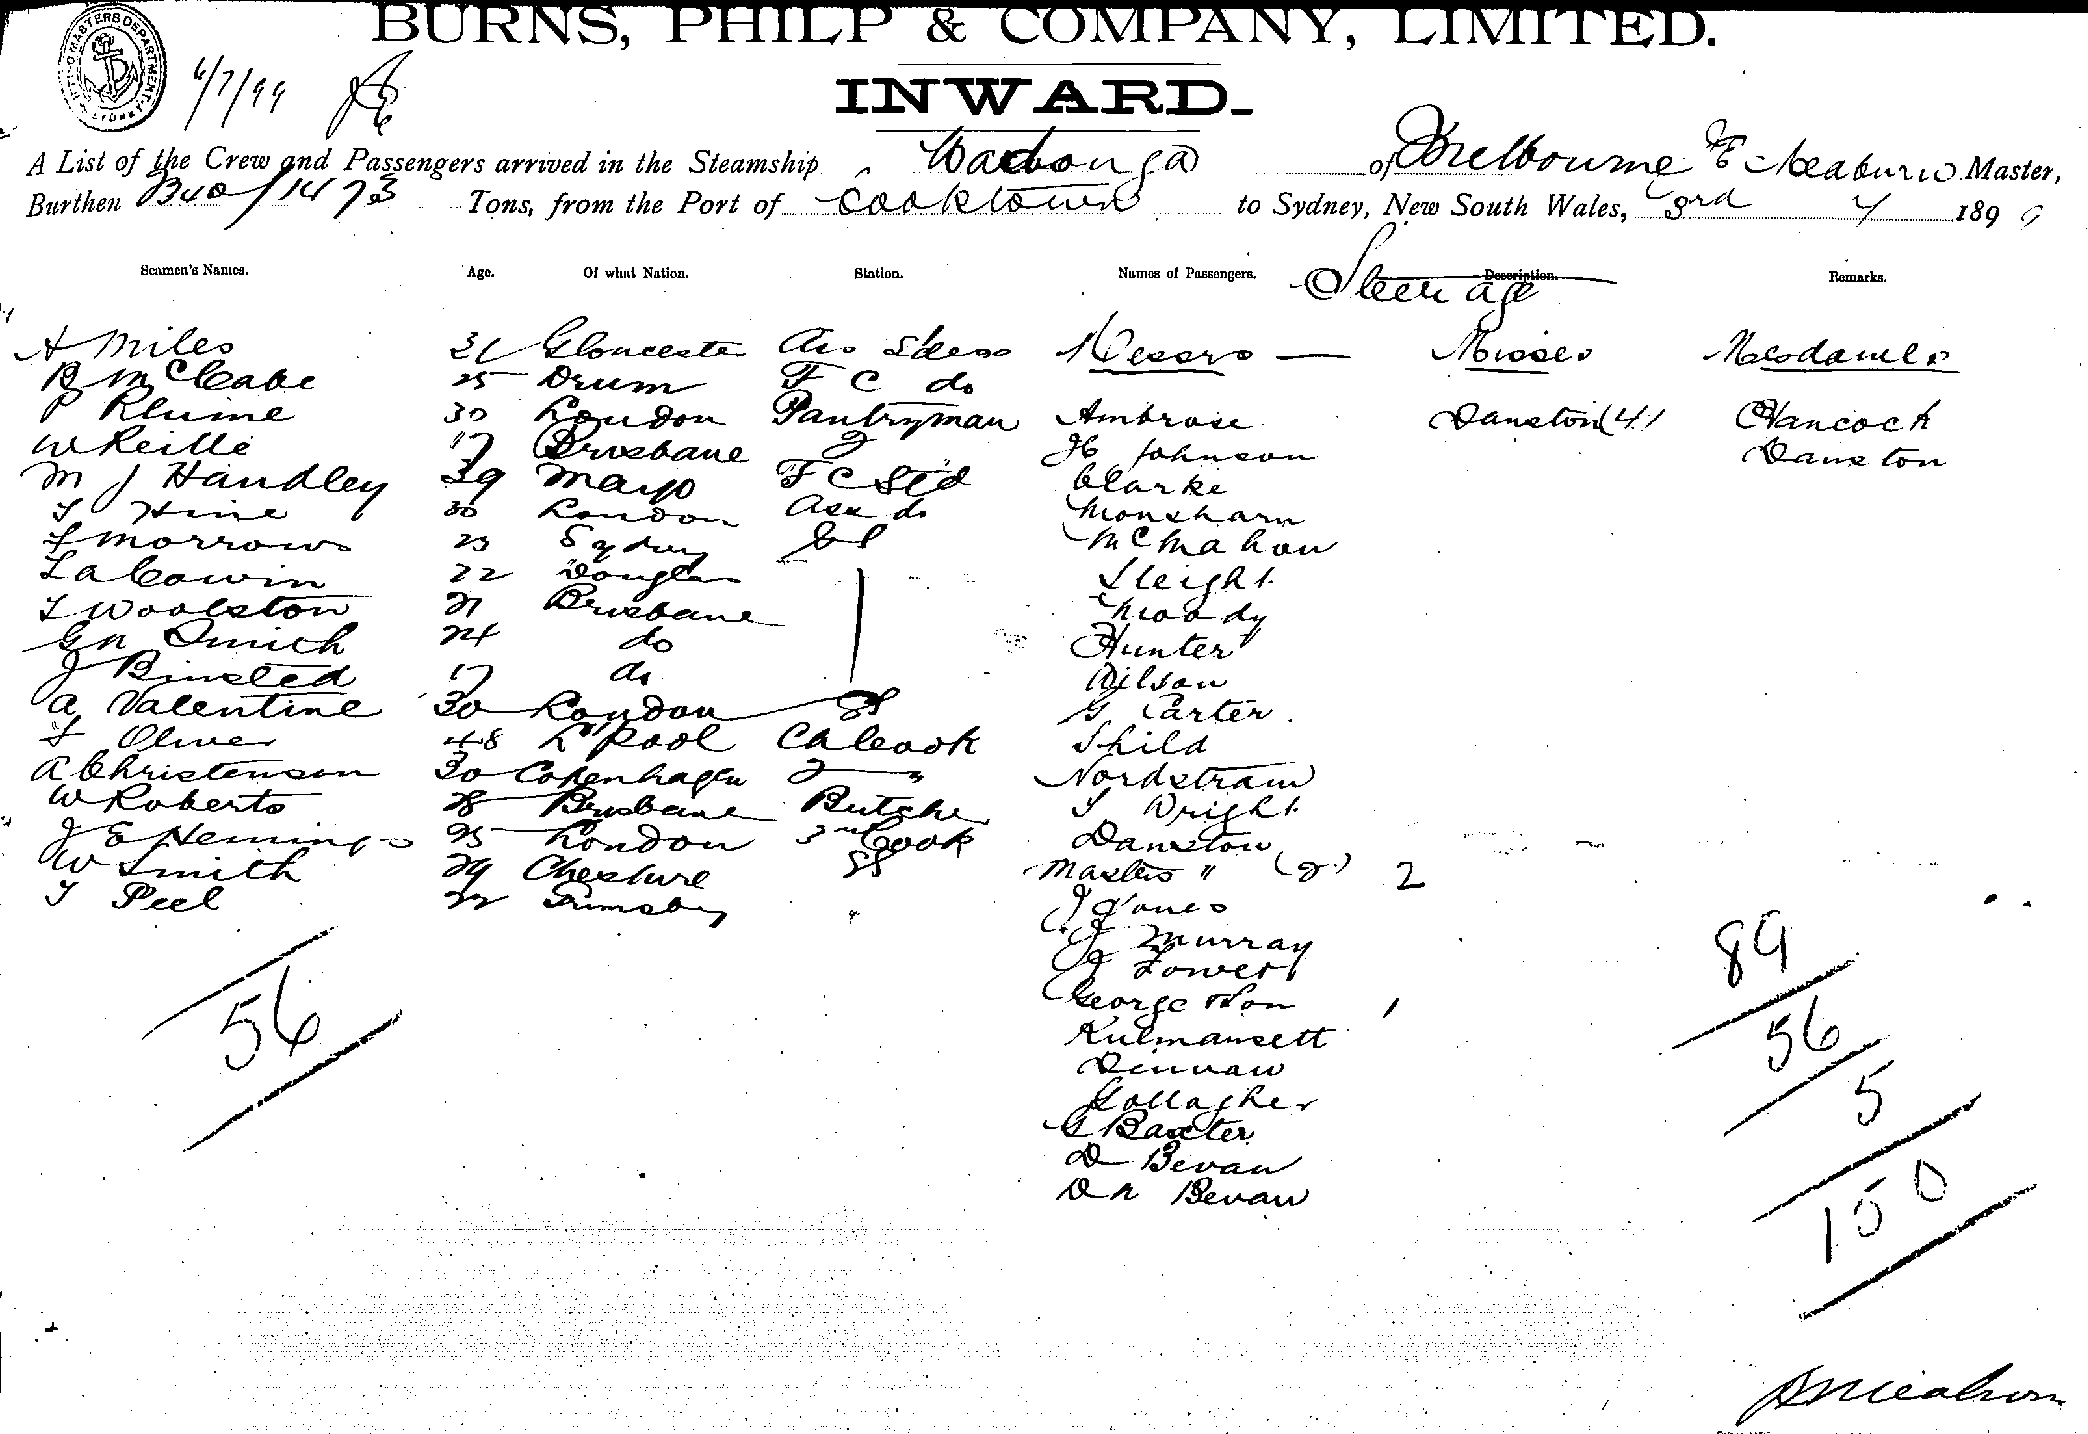 BURNS, PHILP & COMPANY, LIMITED.
INWARD.
6/7/99
A List of the Crew and Passengers arrived in the Steamship Wodonga of Melbourne Meaburn Master,
Burthen 1473 Tons, from the Port of Cooktown to Sydney, New South Wales, 3rd 7 1899
Seamen's Names. Age. Of what Nation. Station. Names of Passengers. Description. Remarks.
Steerage
A Miles 31 Gloucester Messrs — Misses Mesdames
B McCabe 25 Drum F C do
P Klume 30 London Pantryman Ambrose Danston (4) Hancock
W Reille 17 Brisbane 2 H Johnson Danston
M J Handley 39 Mayo F C Std Clarke
T Hine 30 London Ass do Monsharn
T Morrows 23 Sydney McMahon
Cowin 22 Douglas Sleight
T Woolston 21 Brisbane Moody
G N Smith 24 do Hunter
J Binsted 17 do Wilson
A Valentine 30 London G Carter
T Oliver 48 L'Pool Ch Cook Shild
A Christenson 30 Copenhagen 2 " Nordstram
W Roberts 28 Brisbane Butcher T Wright
J E Hemings 25 London 3rd Cook Danston
W Smith 29 Cheshire Masters " (2) 2
T Peel 22 Grimsby J Jones
J Murray
J Tower
George Hon
Kulmansett
Dinnaw
Gallagher
G Baxter
D Bevan
D N Bevan
56
89
56
5
150